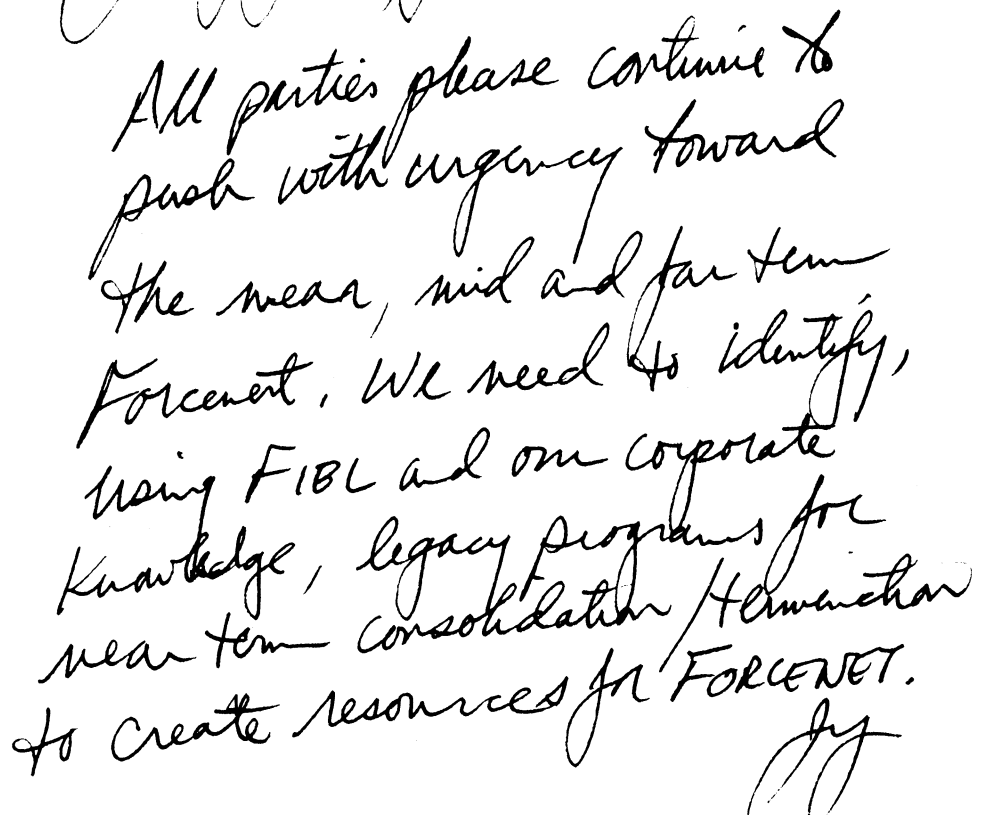 All parties please continue to
push with urgency toward
the near, mid and far term
Forcenet. We need to identify,
using FIBL and our corporate
knowledge, legacy programs for
near term consolidation/termination
to create resources for FORCENET.